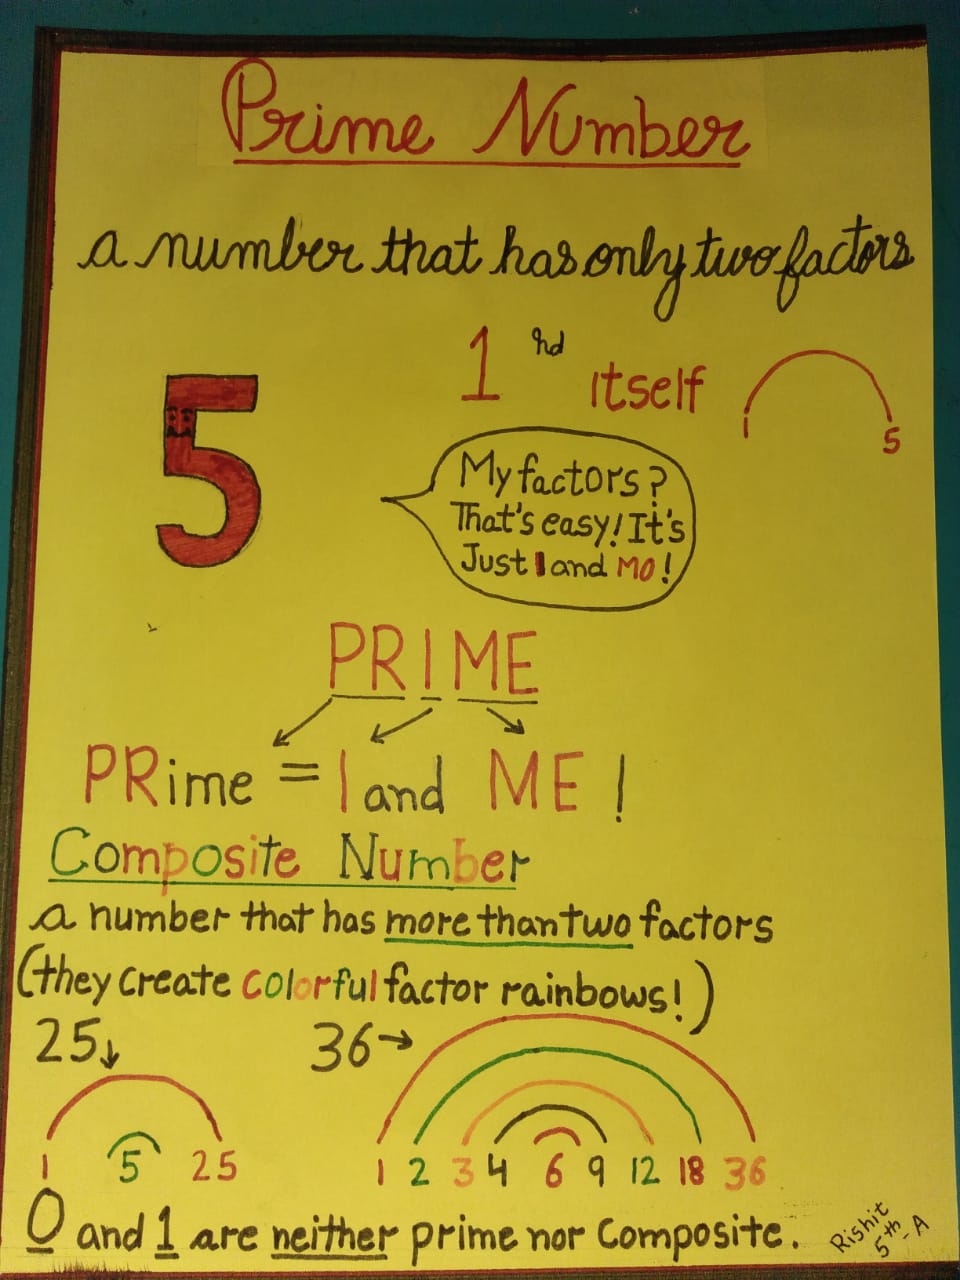 Prime Number
a number that has only two factors
1 nd itself
1 5
5
My factors?
That's easy! It's
Just 1 and MO!
PRIME
PRime = I and ME!
Composite Number
a number that has more than two factors
(they create colorful factor rainbows!)
25↓ 36→
1 5 25
1 2 3 4 6 9 12 18 36
0 and 1 are neither prime nor composite.
Rishit
5th - A